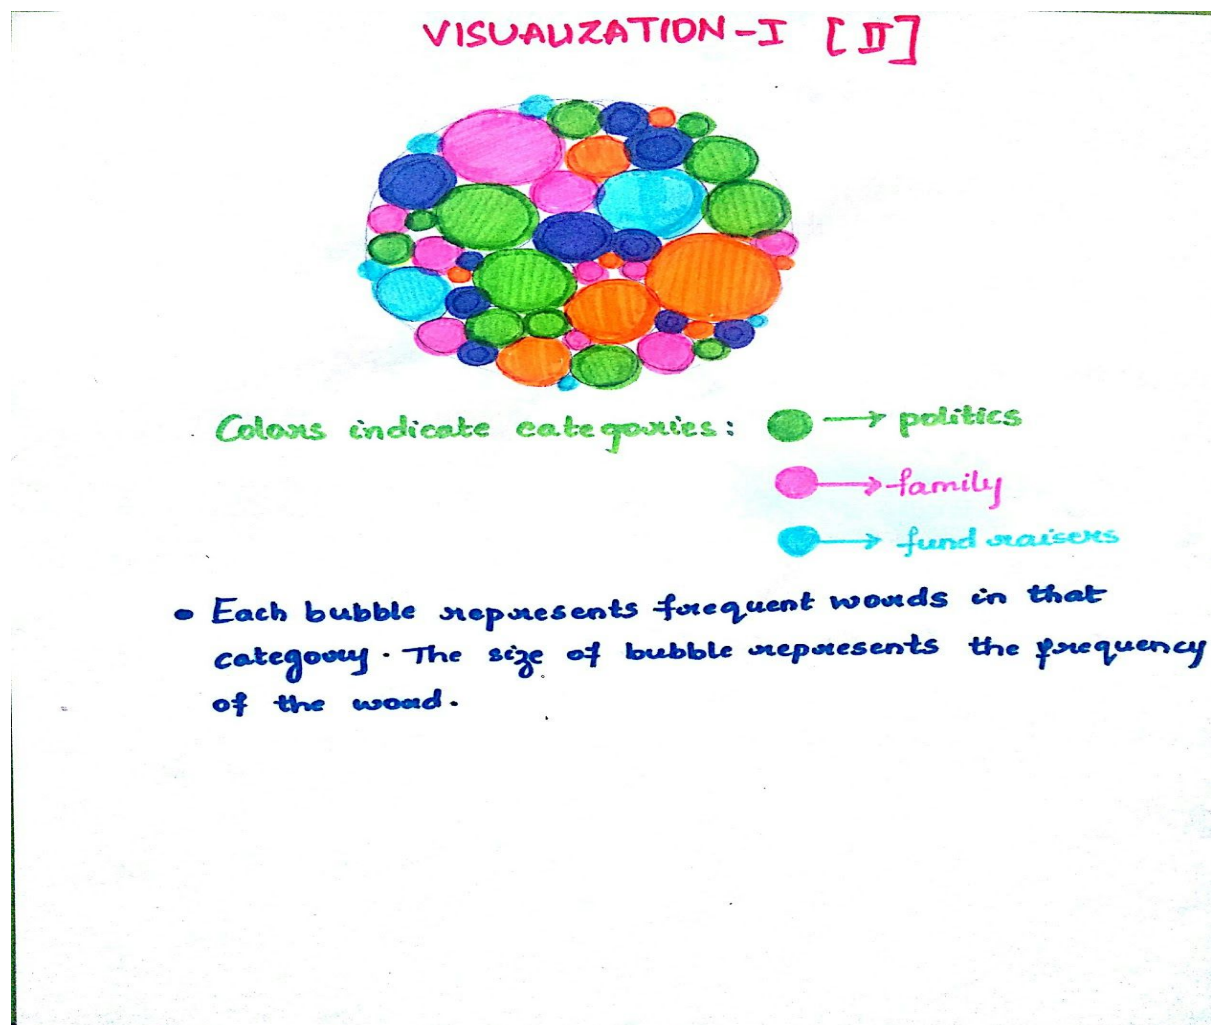 VISUALIZATION-I [II]
Colors indicate categories: → politics
→ family
→ fund raisers
• Each bubble represents frequent words in that
category. The size of bubble represents the frequency
of the word.